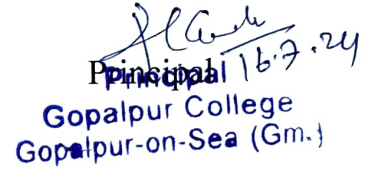 16.7.24
Principal
Principal
Gopalpur College
Gopalpur-on-Sea (Gm.)